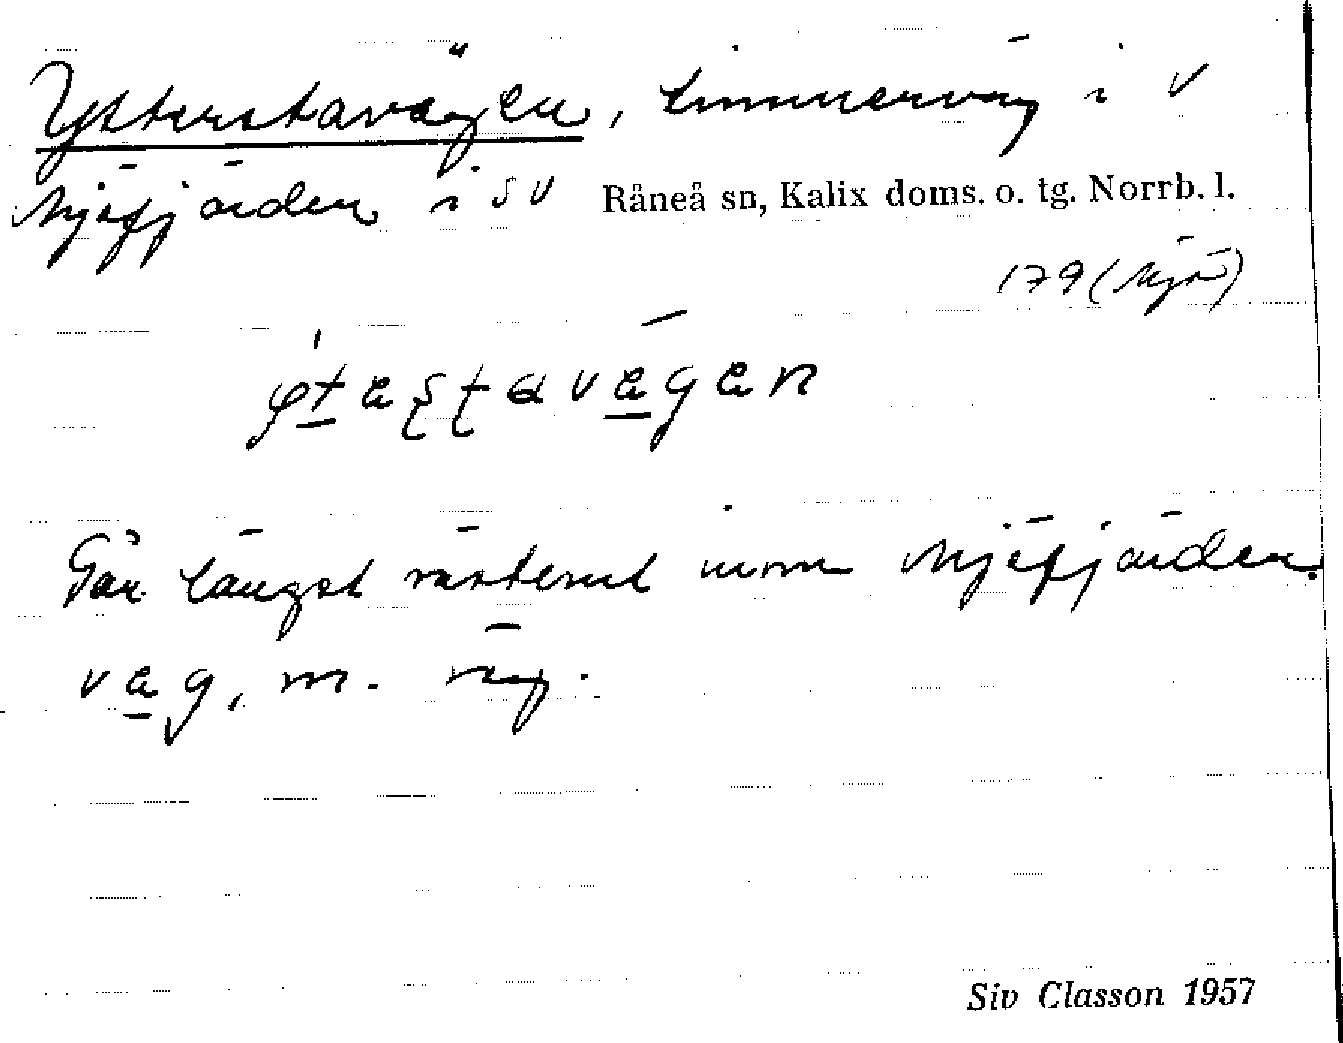 Ytterstavägen, timmerväg i V
Njöfjärden i SV Råneå sn, Kalix doms. o. tg. Norrb. l.
179 (Njö)
Går längst västerut inom Njöfjärden.
vag, m. väg.
Siv Classon 1957